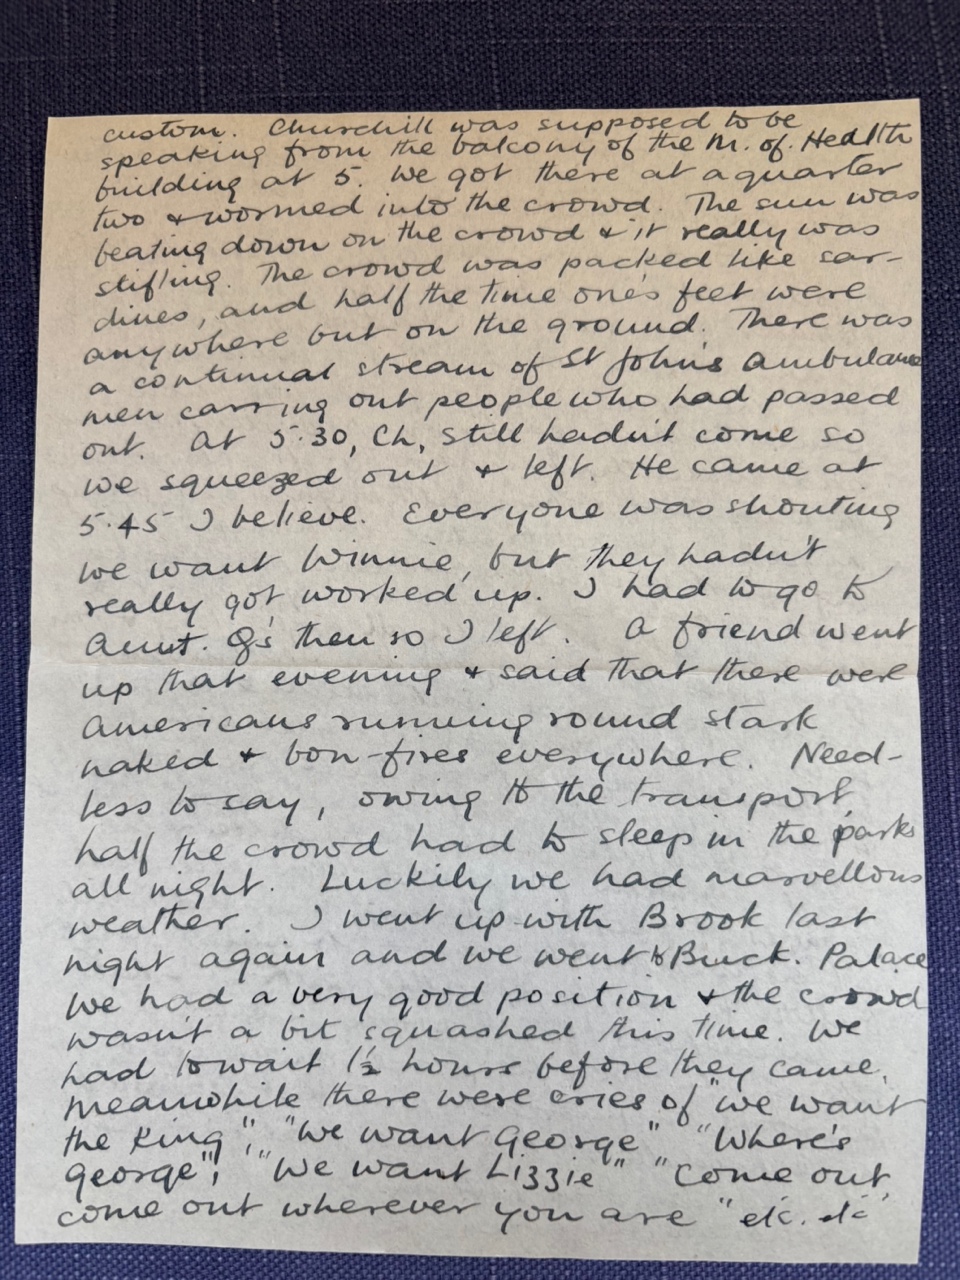 custom. Churchill was supposed to be
speaking from the balcony of the M. of. Health
building at 5. We got there at a quarter
two & wormed into the crowd. The sun was
beating down on the crowd & it really was
stifling. The crowd was packed like sar-
dines, and half the time one's feet were
anywhere but on the ground. There was
a continual stream of St John's Ambulance
men carring out people who had passed
out. At 5.30, Ch, still hadn't come so
we squeezed out & left. He came at
5.45 I believe. Everyone was shouting
we want Winnie, but they hadn't
really got worked up. I had to go to
Aunt. G's then so I left. A friend went
up that evening & said that there were
Americans running round stark
naked & bon-fires everywhere. Need-
less to say, owing to the transport,
half the crowd had to sleep in the parks
all night. Luckily we had marvellous
weather. I went up with Brook last
night again and we went to Buck. Palace
We had a very good position & the crowd
wasn't a bit squashed this time. We
had to wait 1½ hours before they came.
Meanwhile there were cries of "we want
the King", "We want George" "Where's
George", "We want Lizzie" "Come out,
come out wherever you are" etc. etc